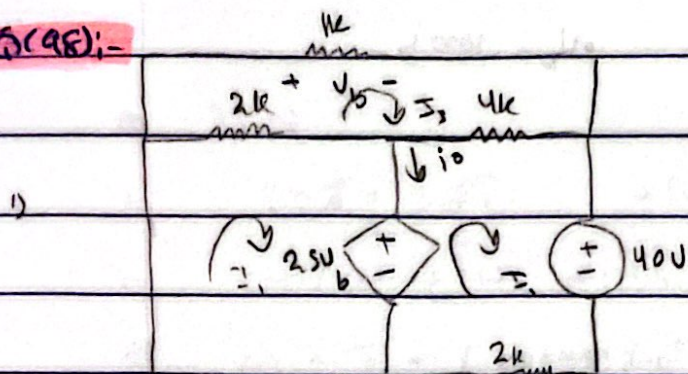 Q(98):-
1k
2k + Vb - I3 4k
i0
1)
I1 25Vb + - I2 + - 40V
2k